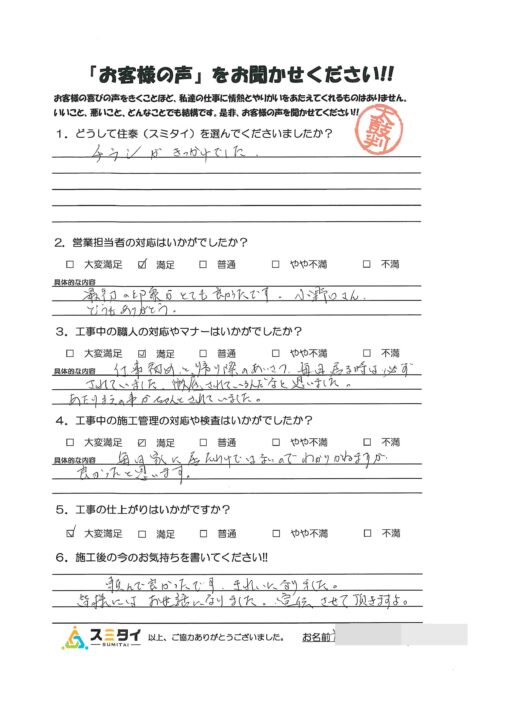 「お客様の声」をお聞かせください!!
お客様の喜びの声をきくことほど、私達の仕事に情熱とやりがいをあたえてくれるものはありません。
いいこと、悪いこと、どんなことでも結構です。是非、お客様の声を聞かせてください!!
太鼓判
1．どうして住泰（スミタイ）を選んでくださいましたか？
チラシがきっかけでした．
2．営業担当者の対応はいかがでしたか？
□ 大変満足 ☑ 満足 □ 普通 □ やや不満 □ 不満
具体的な内容
最初の印象がとても良かったです。小野口さん．
どうもありがとう。
3．工事中の職人の対応やマナーはいかがでしたか？
□ 大変満足 ☑ 満足 □ 普通 □ やや不満 □ 不満
具体的な内容 仕事初めと帰り際のあいさつ、毎日居る時は必ず
されていました．徹底されているんだなと思いました。
あたりまえの事がちゃんとされていました。
4．工事中の施工管理の対応や検査はいかがでしたか？
□ 大変満足 ☑ 満足 □ 普通 □ やや不満 □ 不満
具体的な内容 毎日家に居たわけではないのでわかりかねますが
良かったと思います。
5．工事の仕上がりはいかがですか？
☑ 大変満足 □ 満足 □ 普通 □ やや不満 □ 不満
6．施工後の今のお気持ちを書いてください!!
頼んで良かったです．きれいになりました。
皆様にはお世話になりました．宣伝させて頂きますよ。
スミタイ 以上、ご協力ありがとうございました。 お名前
SUMITAI